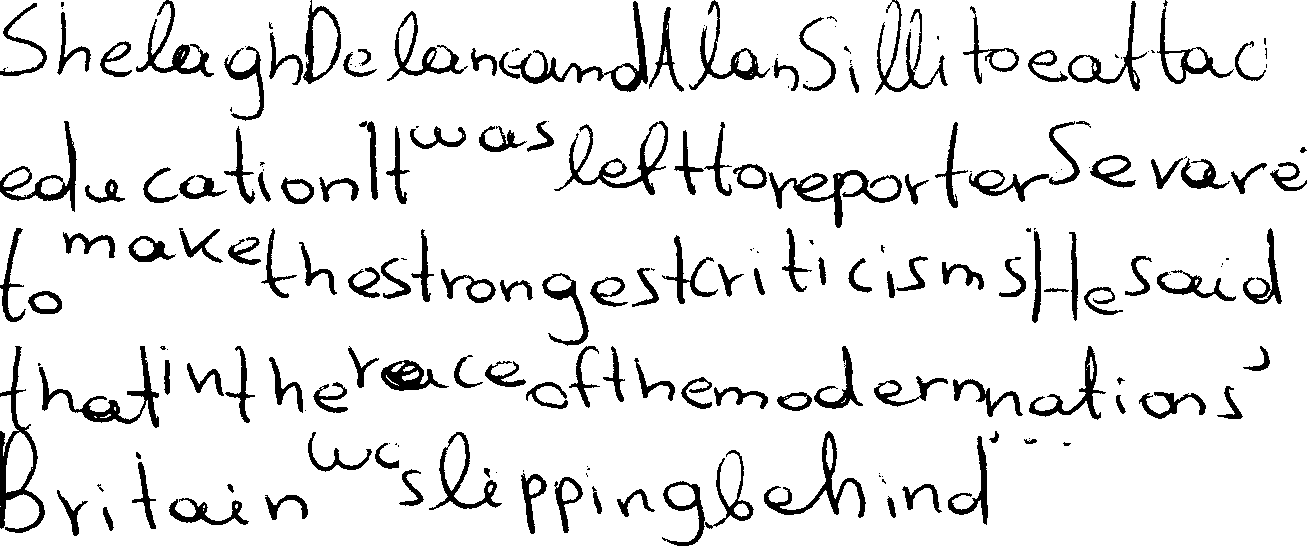 Shelagh Delane and Alan Sillitoe attac
education It was left to reporter Sevare
to make the strongest criticisms He said
that in the race of the modern nations'
Britain wa slipping behind